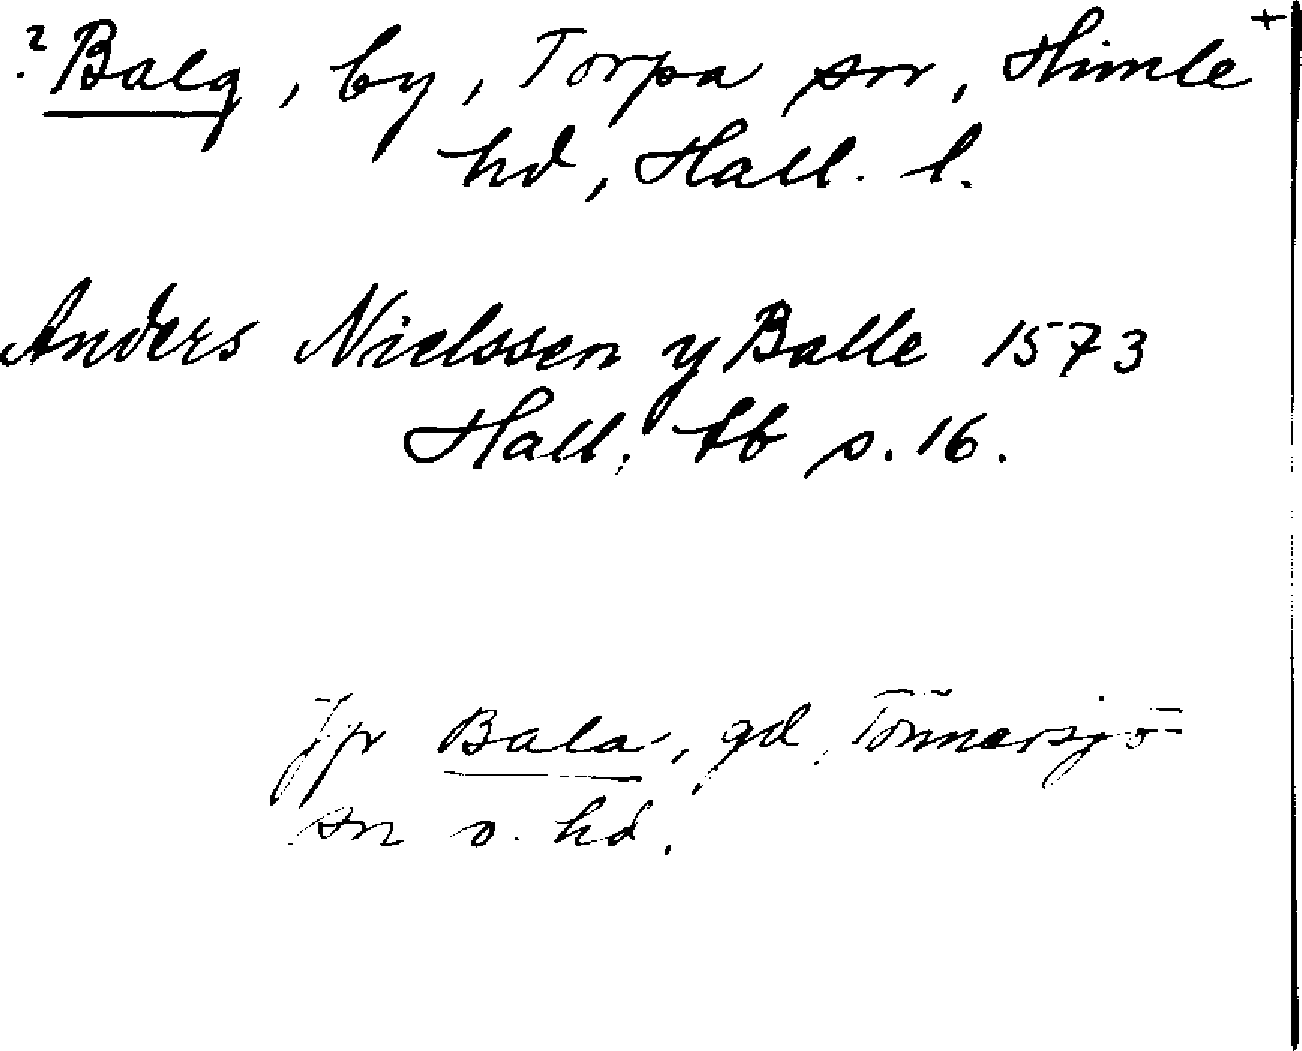 ? Balg, by, Torpa sn, Himle +
hd, Hall. l.
Anders Nielssen y Balle 1573
Hall. tb s. 16.
Jfr Bala, gd, Tönnersjö
sn o. hd.